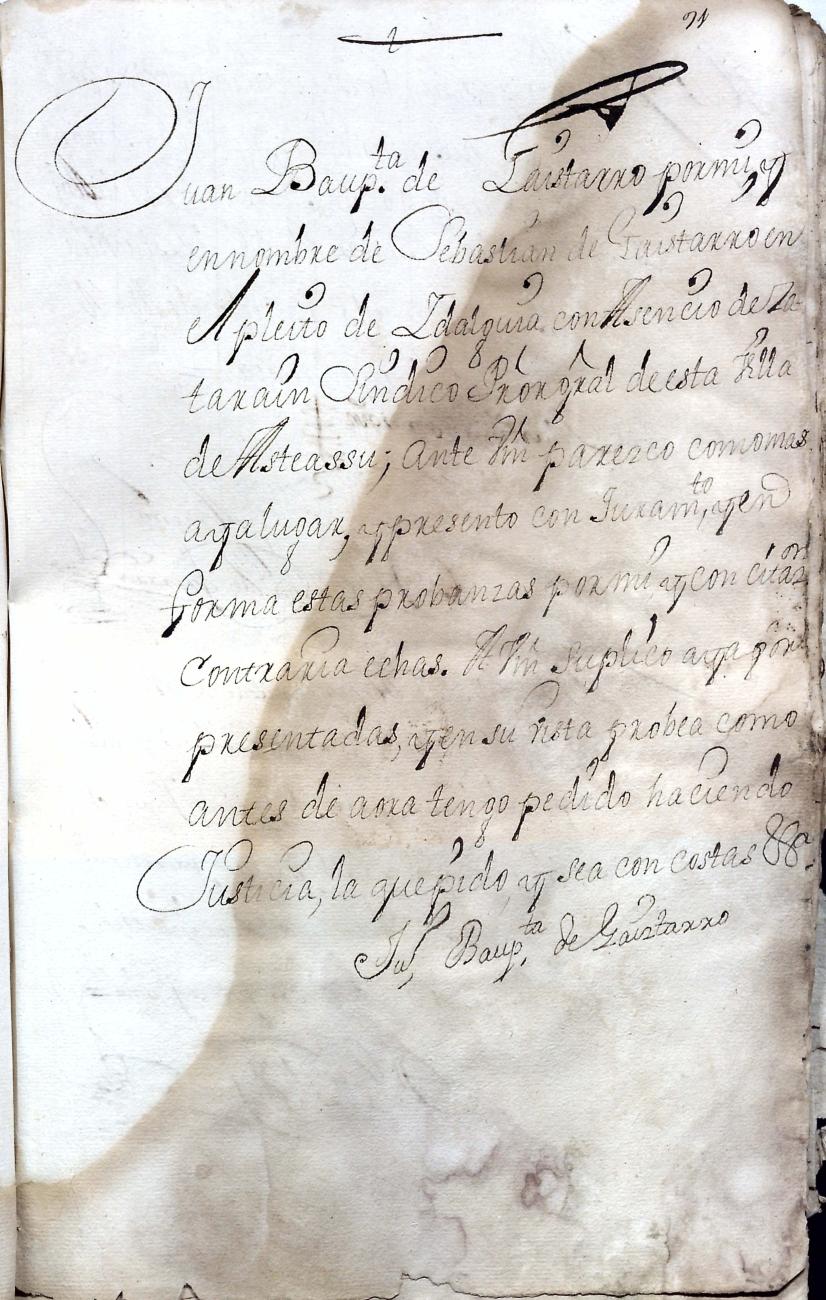 21
Juan Baup.ta de Gaistarro por mi, y
en nombre de Sebastian de Gaistarro en
el pleito de Idalguia con Asencio de La-
tarain Sindico Pror gral de esta Villa
de Asteassu; ante Vm parezco como mas
aya lugar, y presento con Juram.to, y en
forma estas probanzas por mi, y con citaz.on
contraria echas. A Vm suplico aya por
presentadas, y en su vista probea como
antes de aora tengo pedido haciendo
Justicia, la que pido, y sea con costas &.a
Ju.n Baup.ta de Gaiztarro